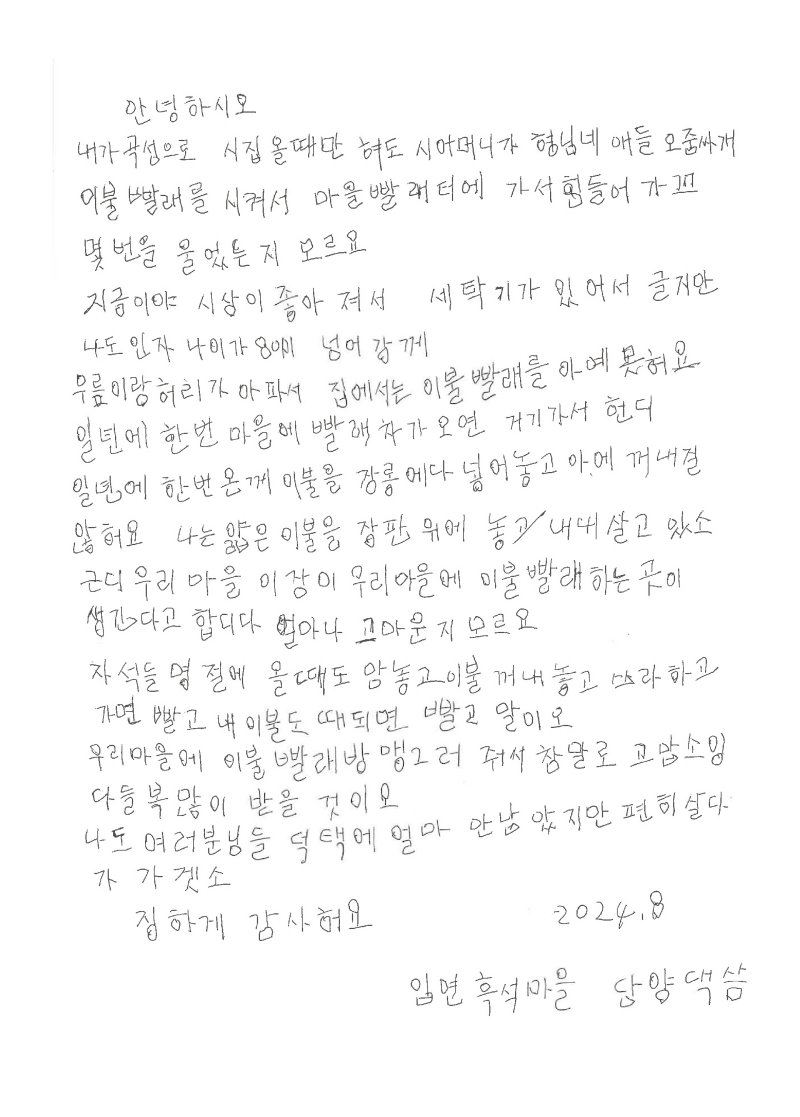 안녕하시오
내가 곡성으로 시집 올때만 혀도 시어머니가 형님네 애들 오줌싸개
이불 빨래를 시켜서 마을 빨래터에 가서 힘들어 가꼬
몇번을 울었는지 모르요
지금이야 시상이 좋아 져서 세탁기가 있어서 글지만
나도 인자 나이가 80이 넘어 강께
무릎이랑 허리가 아파서 집에서는 이불 빨래를 아예 못혀요
일년에 한번 마을에 빨래차가 오면 거기가서 헌디
일년에 한번 온께 이불을 장롱에다 넣어놓고 아에 꺼내질
않혀요 나는 얇은 이불을 장판 위에 놓고 내내 살고 있소
근디 우리 마을 이장이 우리마을에 이불빨래 하는 곳이
생긴다고 합디다 얼마나 고마운지 모르요
자석들 명절에 올때도 암놓고 이불 꺼내 놓고 쓰라하고
가면 빨고 내 이불도 때되면 빨고 말이오
우리마을에 이불 빨래방 맹그러 줘서 참말로 고맙소잉
다들 복 많이 받을 것이오
나도 여러분님들 덕택에 얼마 안남았지만 편히살다
가 가겟소
징하게 감사혀요 2024.8
입면 흑석마을 단양댁 삼